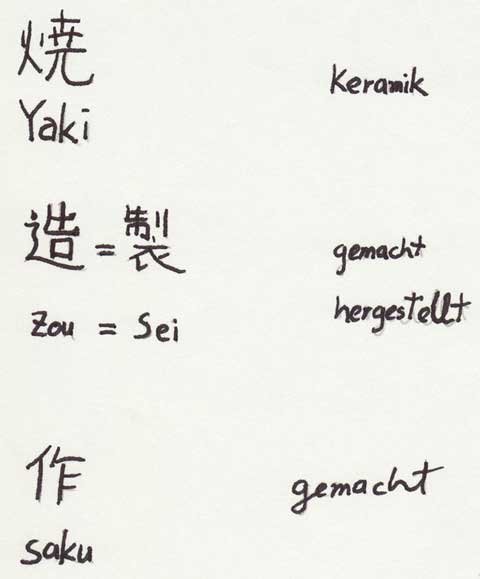 焼
Keramik
Yaki
造 = 製
gemacht
hergestellt
Zou = Sei
作
gemacht
saku